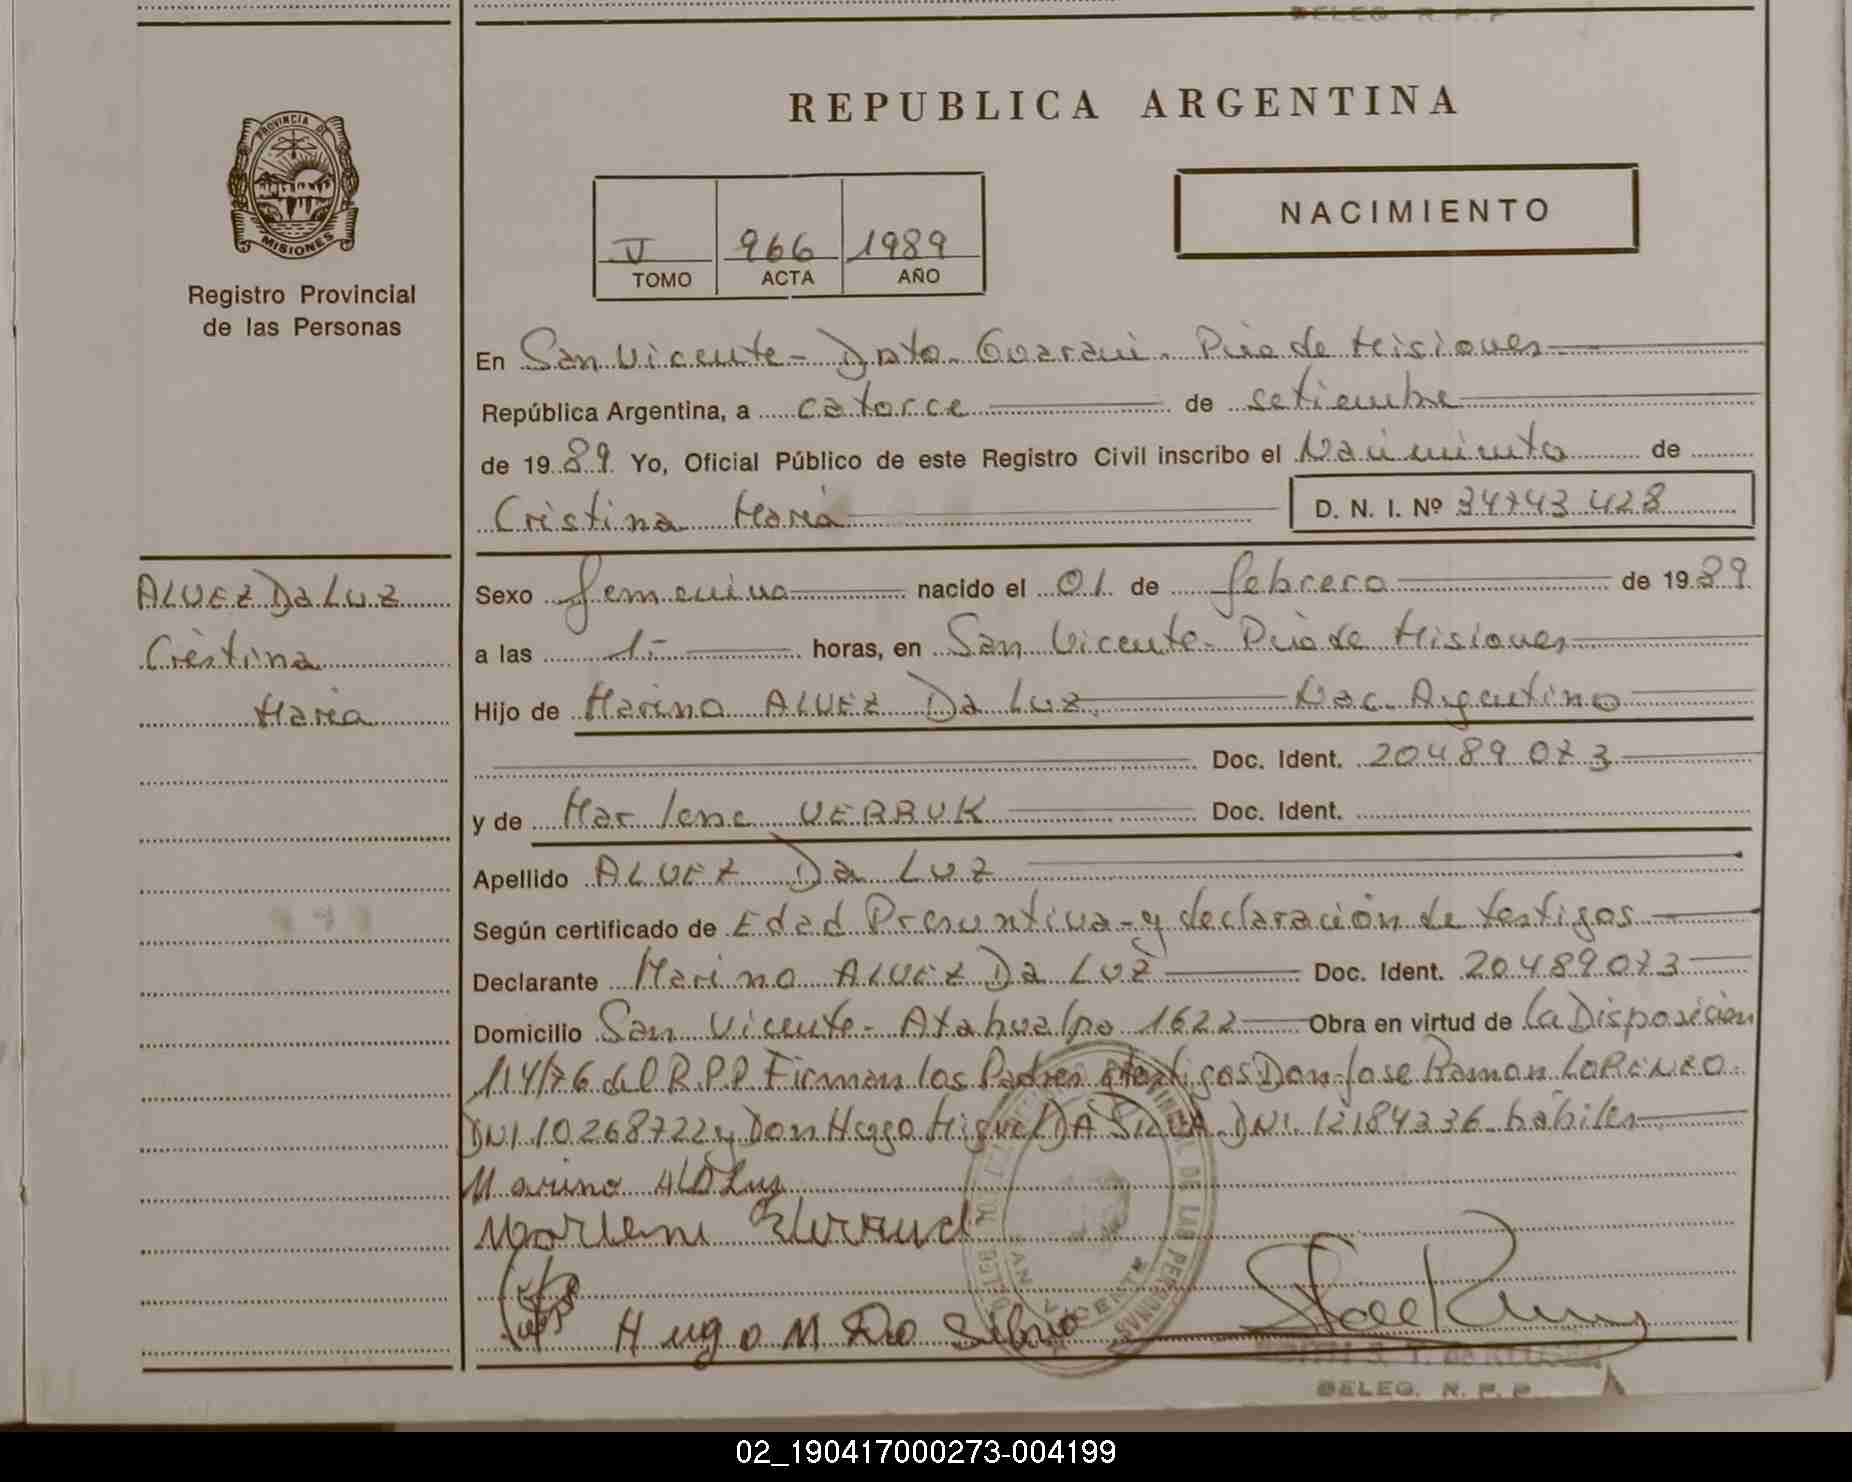 DELEG. R. P. P.
REPUBLICA ARGENTINA
PROVINCIA DE
MISIONES
Registro Provincial
de las Personas
V 966 1989
TOMO ACTA AÑO
NACIMIENTO
En San Vicente - Dpto. Guaraní. Pcia de Misiones
República Argentina, a catorce de setiembre
de 19 89 Yo, Oficial Público de este Registro Civil inscribo el Nacimiento de
Cristina María D. N. I. Nº 34743428
ALVEZ Da LUZ
Cristina
María
Sexo femenino nacido el 01 de febrero de 19 89
a las 1- horas, en San Vicente - Pcia de Misiones
Hijo de Marino ALVEZ Da LUZ Nac. Argentino
Doc. Ident. 20489073
y de Marlene VERRUK Doc. Ident.
Apellido ALVEZ Da LUZ
Según certificado de Edad Presuntiva - y declaración de testigos
Declarante Marino ALVEZ Da LUZ Doc. Ident. 20489073
Domicilio San Vicente - Atahualpa 1622 Obra en virtud de la Disposición
114/76 del R.P.P. Firman los Padres y testigos Don Jose Ramon LORENZO.
DNI 10268722 y Don Hugo Miguel DA SILVA DNI. 12184236 hábiles
Marino ALD Luz
Marlene
Hugo M Da Silva
SAN VICENTE
DELEG. R. P. P.
02_190417000273-004199